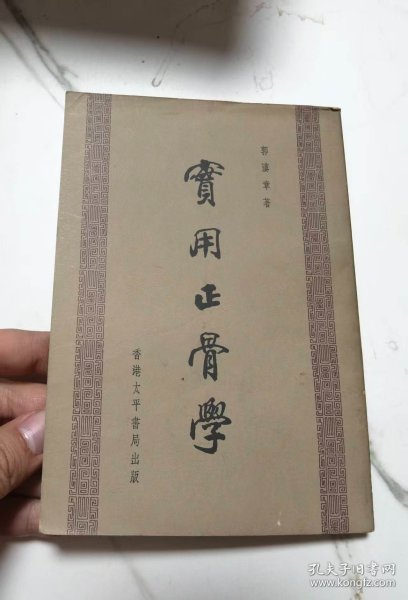 郭漢章著
實用正骨學
香港太平書局出版
孔夫子旧书网
www.kongfz.com